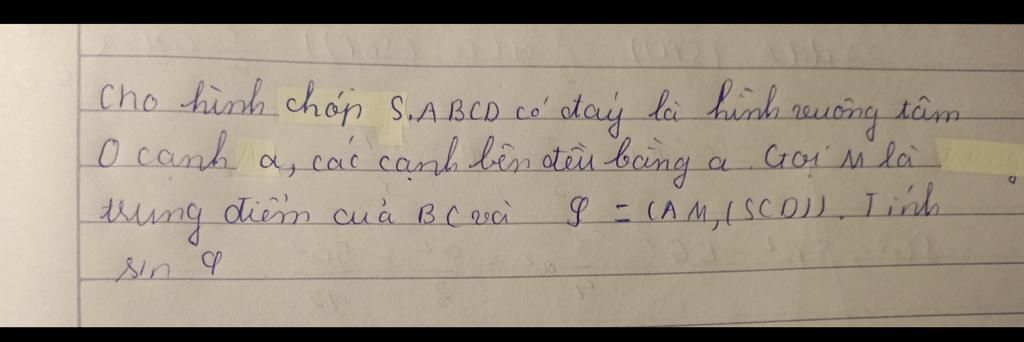 Cho hình chóp S.ABCD có đáy là hình vuông tâm
O cạnh a, các cạnh bên đều bằng a. Gọi M là
trung điểm của BC và φ = (AM, (SCD)). Tính
sin φ